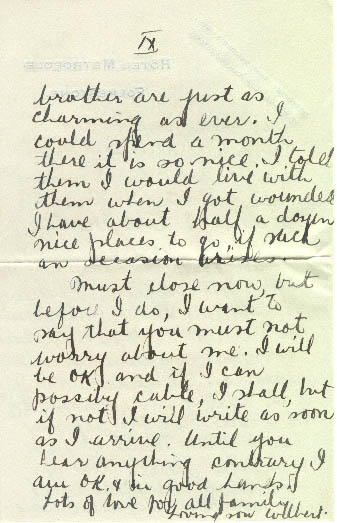 IX
brother are just as
charming as ever. I
could spend a month
there it is so nice. I told
them I would live with
them when I got wounded
I have about half a dozen
nice places to go if such
an occasion arises.
Must close now, but
before I do, I want to
say that you must not
worry about me. I will
be OK and if I can
possibly cable, I shall, but
if not I will write as soon
as I arrive. Until you
hear anything contrary I
am OK & in good hands.
Lots of love for all family
Loving son Wilbert.